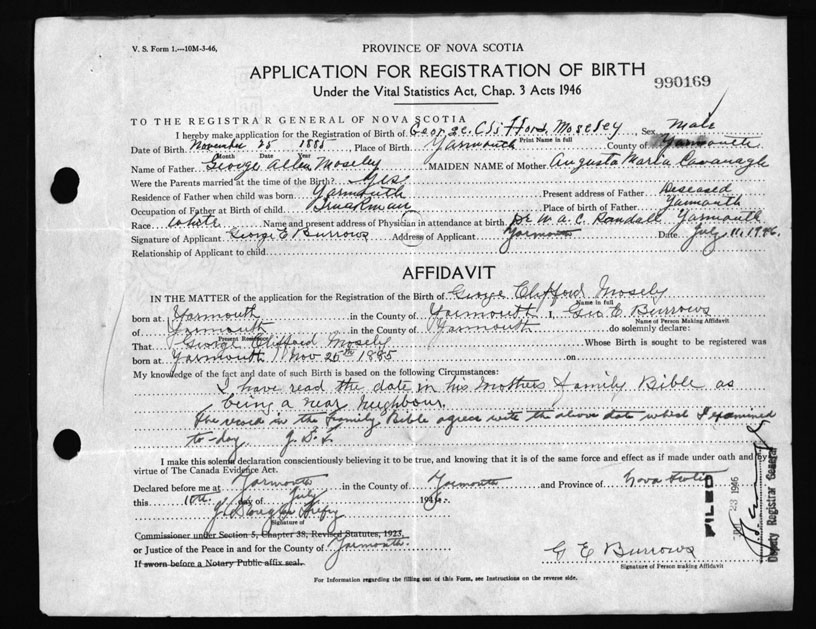 V. S. Form 1.—10M-3-46,
PROVINCE OF NOVA SCOTIA
APPLICATION FOR REGISTRATION OF BIRTH
990169
Under the Vital Statistics Act, Chap. 3 Acts 1946
TO THE REGISTRAR GENERAL OF NOVA SCOTIA
I hereby make application for the Registration of Birth of George Clifford Moseley, Sex Male
Print Name in full
Date of Birth November 25 1885, Place of Birth Yarmouth County of Yarmouth
Month Date Year
Name of Father George Allen Mosely MAIDEN NAME of Mother Augusta Maria Cavanagh
Were the Parents married at the time of the Birth? Yes
Residence of Father when child was born Yarmouth Present address of Father Diseased
Occupation of Father at Birth of child Truckman Place of birth of Father Yarmouth
Race White Name and present address of Physician in attendance at birth Dr W. A. C. Randall Yarmouth
Signature of Applicant George E Burrows Address of Applicant Yarmouth Date July 11, 1946.
Relationship of Applicant to child
AFFIDAVIT
IN THE MATTER of the application for the Registration of the Birth of George Clifford Mosely
Name in full
born at Yarmouth in the County of Yarmouth I, Geo E Burrows
Name of Person Making Affidavit
of Yarmouth in the County of Yarmouth do solemnly declare:
Present Residence
That George Clifford Mosely Whose Birth is sought to be registered was
born at Yarmouth Nov 25th 1885 on
My knowledge of the fact and date of such Birth is based on the following Circumstances:
I have read the date in his Mothers Family Bible as
being a near Neighbour.
The record in the Family Bible agrees with the above date which I examined
to-day
I make this solemn declaration conscientiously believing it to be true, and knowing that it is of the same force and effect as if made under oath and by
virtue of The Canada Evidence Act.
Declared before me at Yarmouth in the County of Yarmouth and Province of Nova Scotia
this 10th day of July 1946.
Signature of
Commissioner under Section 5, Chapter 38, Revised Statutes, 1923,
or Justice of the Peace in and for the County of Yarmouth
If sworn before a Notary Public affix seal.
G E Burrows
Signature of Person making Affidavit
For Information regarding the filling out of this Form, see Instructions on the reverse side.
FILED
23 1946
Deputy Registrar General